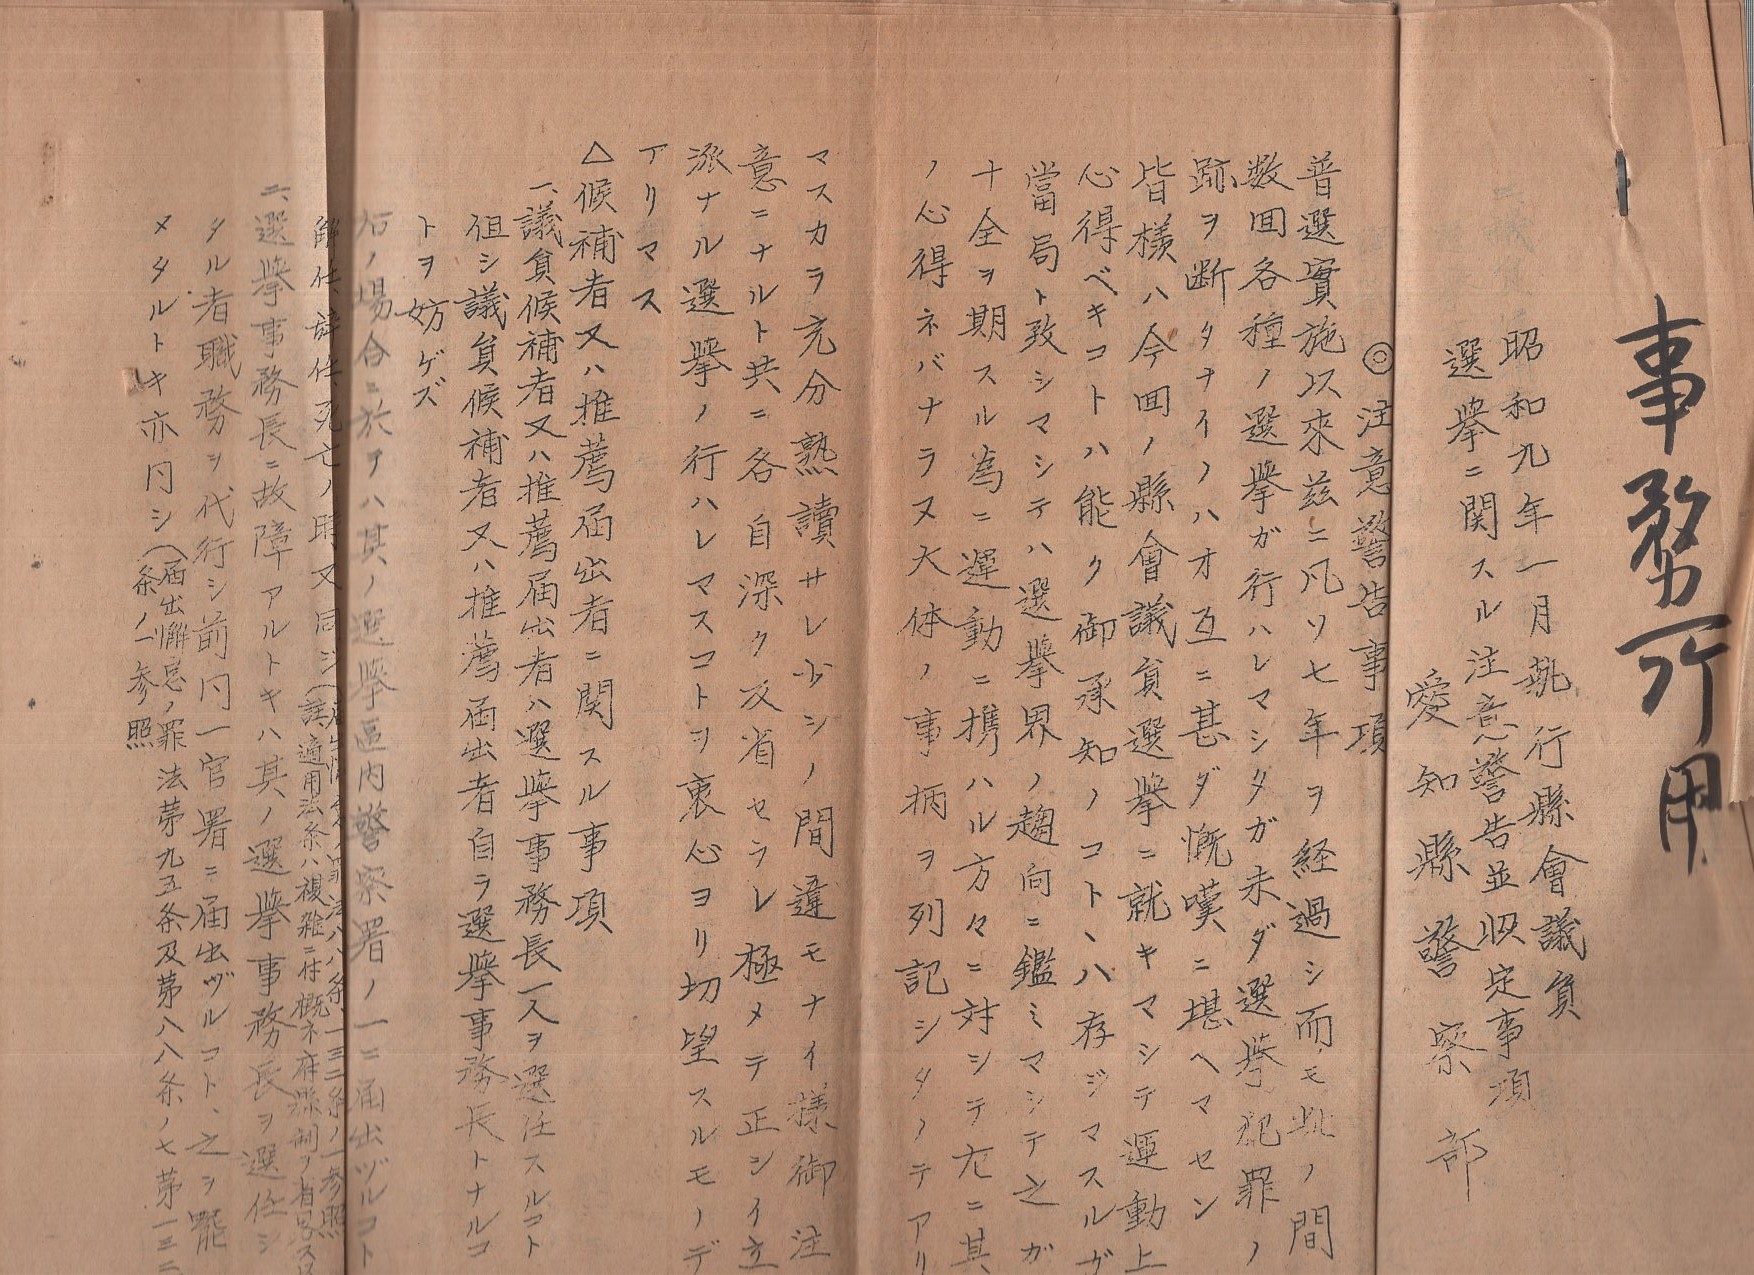 事務所用
昭和九年一月執行縣會議員
選挙ニ関スル注意警告並ニ規定事項
愛知縣警察部
◎注意警告事項
普選實施以來茲ニ凡ソ七年ヲ経過シ而モ此ノ間
数回各種ノ選挙ガ行ハレマシタガ未ダ選挙犯罪ノ
跡ヲ断タナイノハオ互ニ甚ダ慨嘆ニ堪ヘマセン
皆様ハ今回ノ縣會議員選挙ニ就キマシテ運動上
心得ベキコトハ能ク御承知ノコトヽハ存ジマスルガ
當局ト致シマシテハ選挙界ノ趨向ニ鑑ミマシテ之ガ
十全ヲ期スル為ニ運動ニ携ハル方々ニ対シテ左ニ其
ノ心得ネバナラヌ大体ノ事柄ヲ列記シタノデアリ
マスカラ充分熟讀サレ少シノ間違モナイ様御注
意ニナルト共ニ各自深ク反省セラレ極メテ正シイ立
派ナル選挙ノ行ハレマスコトヲ衷心ヨリ切望スルモノデ
アリマス
△候補者又ハ推薦届出者ニ関スル事項
一、議員候補者又ハ推薦届出者ハ選挙事務長一人ヲ選任スルコト
但シ議員候補者又ハ推薦届出者自ラ選挙事務長トナルコ
トヲ妨ゲズ
右ノ場合ニ於テハ其ノ選挙區内警察署ノ一ニ届出ヅルコト
解任、辞任、死亡ノ時又同ジ(届出懈怠ノ罪法八八条、一三二条ノ一参照
註、適用法条ハ複雑ニ付概ネ府縣制ヲ省畧ス以
二、選挙事務長ニ故障アルトキハ其ノ選挙事務長ヲ選任シ
タル者職務ヲ代行シ前同一官署ニ届出ヅルコト、之ヲ罷
メタルトキ亦同シ(届出懈怠ノ罪法第九五条及第八八条ノ七第一三二
条ノ一参照